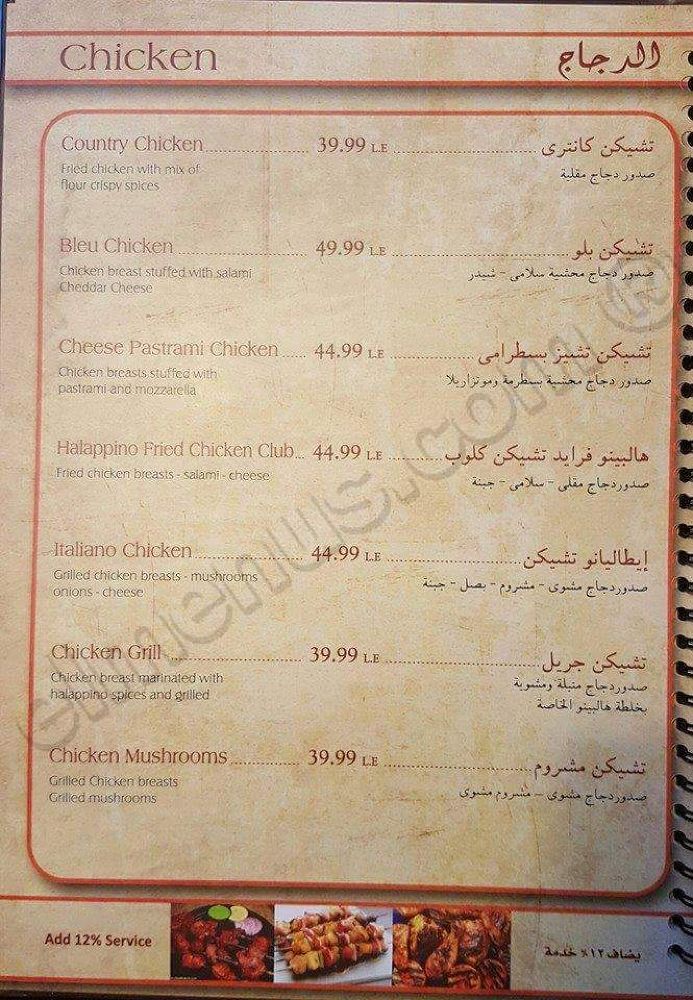 Chicken الدجاج
Country Chicken 39.99 L.E تشيكن كانترى
Fried chicken with mix of
flour crispy spices
صدور دجاج مقلية
Bleu Chicken 49.99 L.E تشيكن بلو
Chicken breast stuffed with salami
Cheddar Cheese
صدور دجاج محشية سلامى - شيدر
Cheese Pastrami Chicken 44.99 L.E تشيكن تشيز بسطرامى
Chicken breasts stuffed with
pastrami and mozzarella
صدور دجاج محشية بسطرمة وموتزاريلا
Halappino Fried Chicken Club 44.99 L.E هالبينو فرايد تشيكن كلوب
Fried chicken breasts - salami - cheese
صدوردجاج مقلى - سلامى - جبنة
Italiano Chicken 44.99 L.E إيطاليانو تشيكن
Grilled chicken breasts - mushrooms
onions - cheese
صدوردجاج مشوى - مشروم - بصل - جبنة
Chicken Grill 39.99 L.E تشيكن جريل
Chicken breast marinated with
halappino spices and grilled
صدوردجاج متبلة ومشوية
بخلطة هالبينو الخاصة
Chicken Mushrooms 39.99 L.E تشيكن مشروم
Grilled Chicken breasts
Grilled mushrooms
صدوردجاج مشوى - مشروم مشوى
Add 12% Service يضاف ١٢٪ خدمة
elmenus.com ®